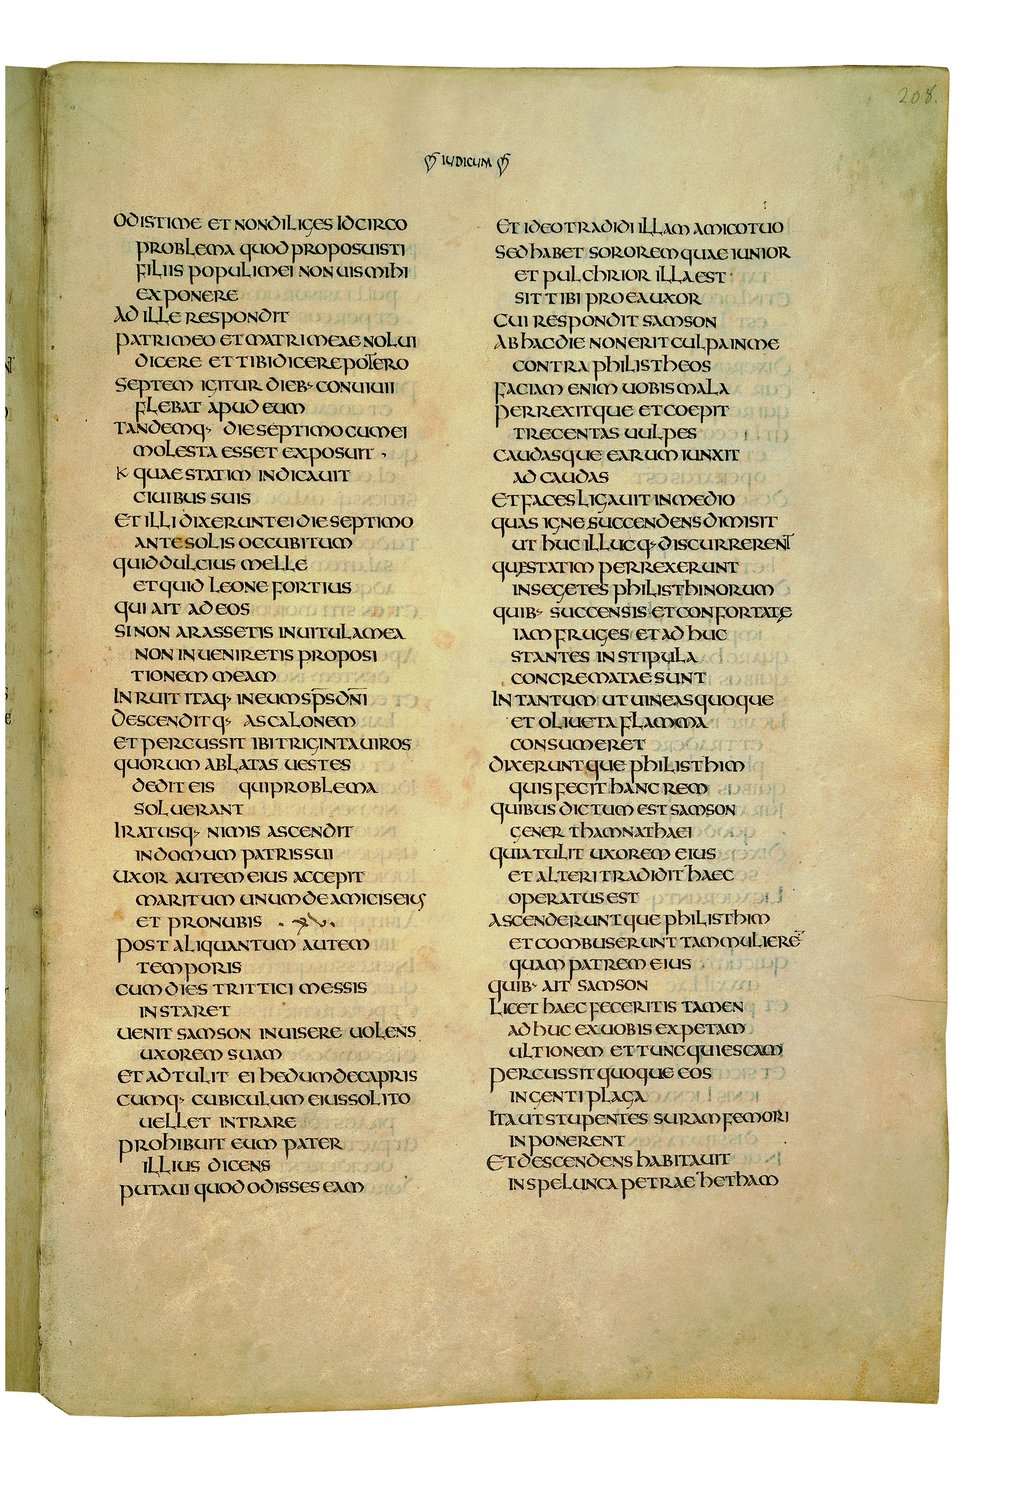 208.
IUDICUM
ODISTI ME ET NON DILIGES IDCIRCO
PROBLEMA QUOD PROPOSUISTI
FILIIS POPULI MEI NON UIS MIHI
EXPONERE
AD ILLE RESPONDIT
PATRI MEO ET MATRI MEAE NOLUI
DICERE ET TIBI DICERE POTERO
SEPTEM IGITUR DIEB· CONUIUII
FLEBAT APUD EUM
TANDEMQ· DIE SEPTIMO CUM EI
MOLESTA ESSET EXPOSUIT
QUAE STATIM INDICAUIT
CIUIBUS SUIS
ET ILLI DIXERUNT EI DIE SEPTIMO
ANTE SOLIS OCCUBITUM
QUID DULCIUS MELLE
ET QUID LEONE FORTIUS
QUI AIT AD EOS
SI NON ARASSETIS IN UITULA MEA
NON INUENIRETIS PROPOSI
TIONEM MEAM
INRUIT ITAQ· IN EUM SP̅S DN̅I
DESCENDITQ· ASCALONEM
ET PERCUSSIT IBI TRIGINTA UIROS
QUORUM ABLATAS UESTES
DEDIT EIS QUI PROBLEMA
SOLUERANT
IRATUSQ· NIMIS ASCENDIT
IN DOMUM PATRIS SUI
UXOR AUTEM EIUS ACCEPIT
MARITUM UNUM DE AMICIS EIUS
ET PRONUBIS
POST ALIQUANTUM AUTEM
TEMPORIS
CUM DIES TRITTICI MESSIS
INSTARET
UENIT SAMSON INUISERE UOLENS
UXOREM SUAM
ET ADTULIT EI HEDUM DE CAPRIS
CUMQ· CUBICULUM EIUS SOLITO
UELLET INTRARE
PROHIBUIT EUM PATER
ILLIUS DICENS
PUTAUI QUOD ODISSES EAM
ET IDEO TRADIDI ILLAM AMICO TUO
SED HABET SOROREM QUAE IUNIOR
ET PULCHRIOR ILLA EST
SIT TIBI PRO EA UXOR
CUI RESPONDIT SAMSON
AB HAC DIE NON ERIT CULPA IN ME
CONTRA PHILISTHEOS
FACIAM ENIM UOBIS MALA
PERREXITQUE ET COEPIT
TRECENTAS UULPES
CAUDASQUE EARUM IUNXIT
AD CAUDAS
ET FACES LIGAUIT IN MEDIO
QUAS IGNE SUCCENDENS DIMISIT
UT HUC ILLUCQ· DISCURRERENT
QUE STATIM PERREXERUNT
IN SEGETES PHILISTHINORUM
QUIB· SUCCENSIS ET CONFORTATE
IAM FRUGES ET AD HUC
STANTES IN STIPULA
CONCREMATAE SUNT
IN TANTUM UT UINEAS QUOQUE
ET OLIUETA FLAMMA
CONSUMERET
DIXERUNTQUE PHILISTHIM
QUIS FECIT HANC REM
QUIBUS DICTUM EST SAMSON
GENER THAMNATHAEI
QUIA TULIT UXOREM EIUS
ET ALTERI TRADIDIT HAEC
OPERATUS EST
ASCENDERUNTQUE PHILISTHIM
ET COMBUSERUNT TAM MULIERĒ
QUAM PATREM EIUS
QUIB· AIT SAMSON
LICET HAEC FECERITIS TAMEN
AD HUC EX UOBIS EXPETAM
ULTIONEM ET TUNC QUIESCAM
PERCUSSIT QUOQUE EOS
INGENTI PLAGA
ITA UT STUPENTES SURAM FEMORI
INPONERENT
ET DESCENDENS HABITAUIT
IN SPELUNCA PETRAE HETHAM